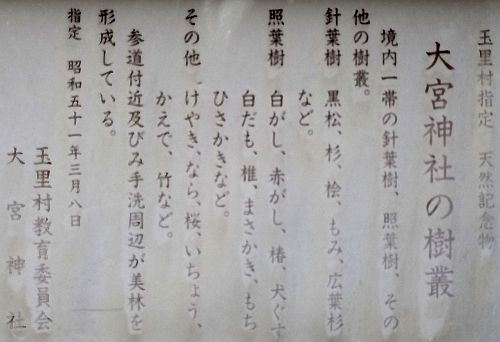 玉里村指定 天然記念物
大宮神社の樹叢
境内一帯の針葉樹、照葉樹、その
他の樹叢。
針葉樹 黒松、杉、桧、もみ、広葉杉
など。
照葉樹 白がし、赤がし、椿、犬ぐす
白だも、椎、まさかき、もち
ひさかきなど。
その他 けやき、なら、桜、いちょう、
かえで、竹など。
参道付近及びみ手洗周辺が美林を
形成している。
指定 昭和五十一年三月八日
玉里村教育委員会
大宮神社